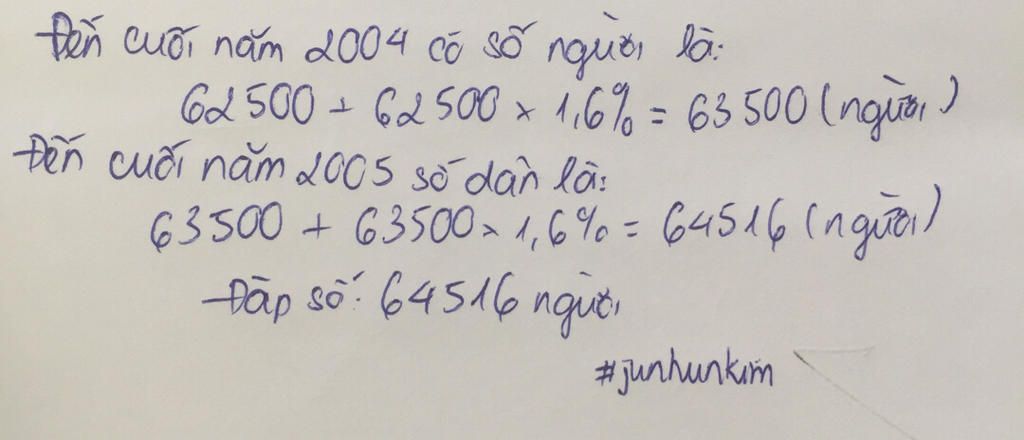 Đến cuối năm 2004 có số người là:
62500 + 62500 × 1,6% = 63500 (người)
Đến cuối năm 2005 số dân là:
63500 + 63500 × 1,6% = 64516 (người)
Đáp số: 64516 người
#junhunkim